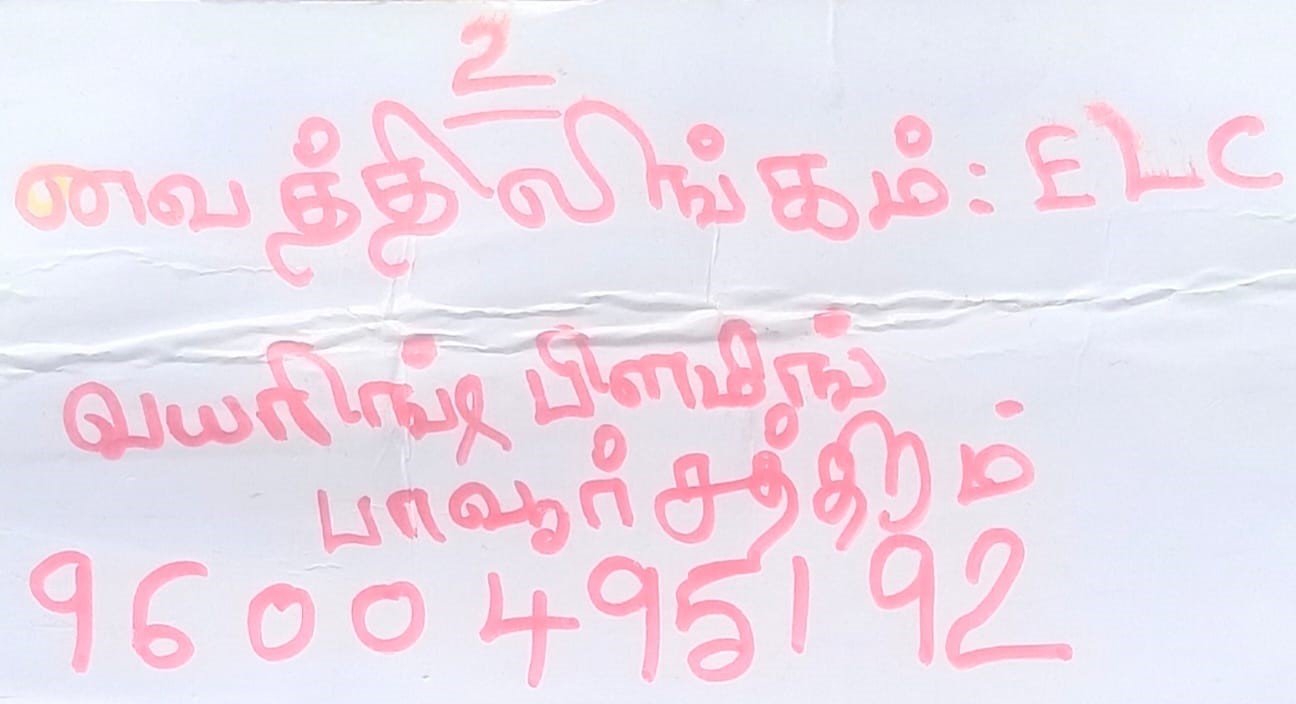 உ
வைத்திலிங்கம்: ELC
வயரிங் & பிளமிங்
பாவூர்சத்திரம்
9600495192